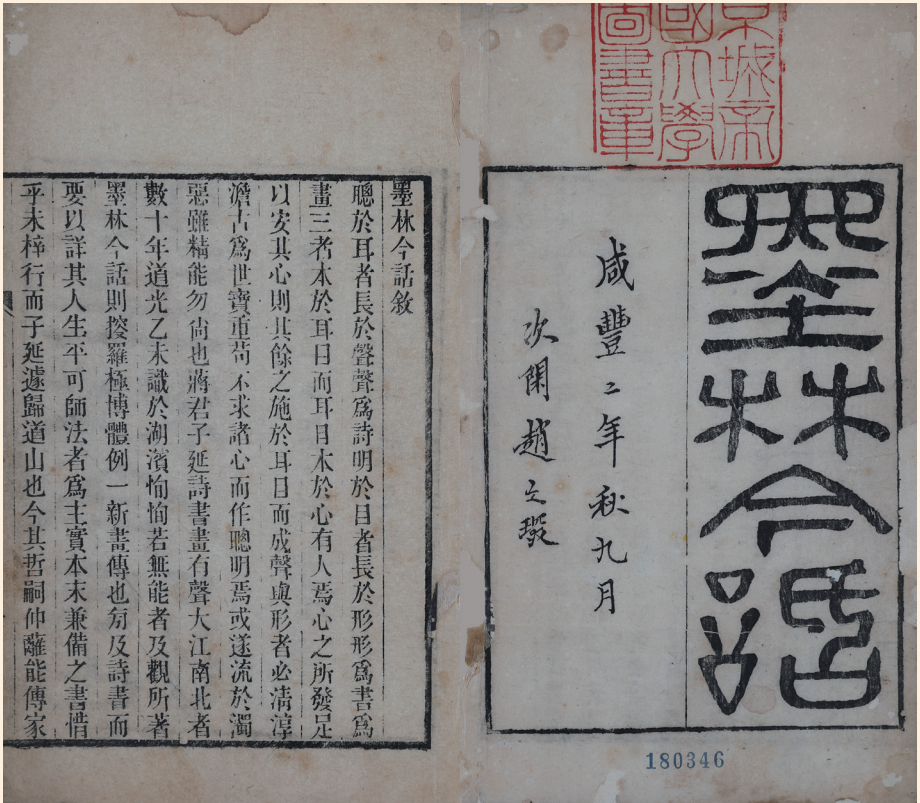 京城帝
國大學
圖書章
墨林今話
咸豐二年秋九月
次閑趙之琛
180346
墨林今話敘
聰於耳者長於聲聲爲詩明於目者長於形形爲書爲
畫三者本於耳目而耳目木於心有人焉心之所發足
以安其心則其餘之施於耳目而成聲與形者必清淳
澹古爲世寶重苟不求諸心而作聰明焉或遂流於濁
惡雖精能勿尙也蔣君子延詩書畫有聲大江南北者
數十年道光乙未識於湖濱恂恂若無能者及觀所著
墨林今話則搜羅極博體例一新畫傳也匇及詩書而
要以詳其人生平可師法者爲主實本末兼備之書惜
乎未梓行而子延遽歸道山也今其哲嗣仲蘺能傳家